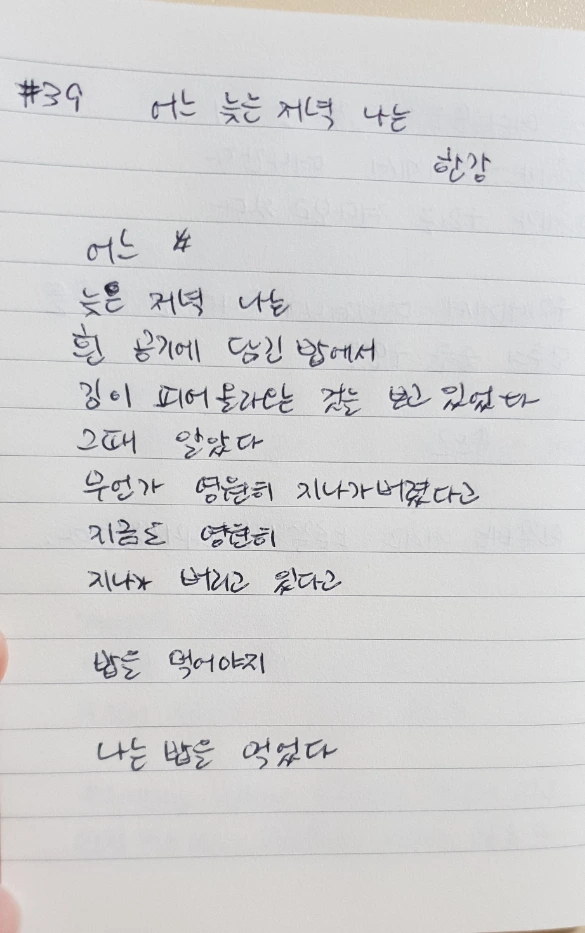 #39 어느 늦은 저녁 나는
한강
어느
늦은 저녁 나는
흰 공기에 담긴 밥에서
김이 피어 올라오는 것을 보고 있었다
그때 알았다
무언가 영원히 지나가버렸다고
지금도 영원히
지나가 버리고 있다고
밥을 먹어야지
나는 밥을 먹었다